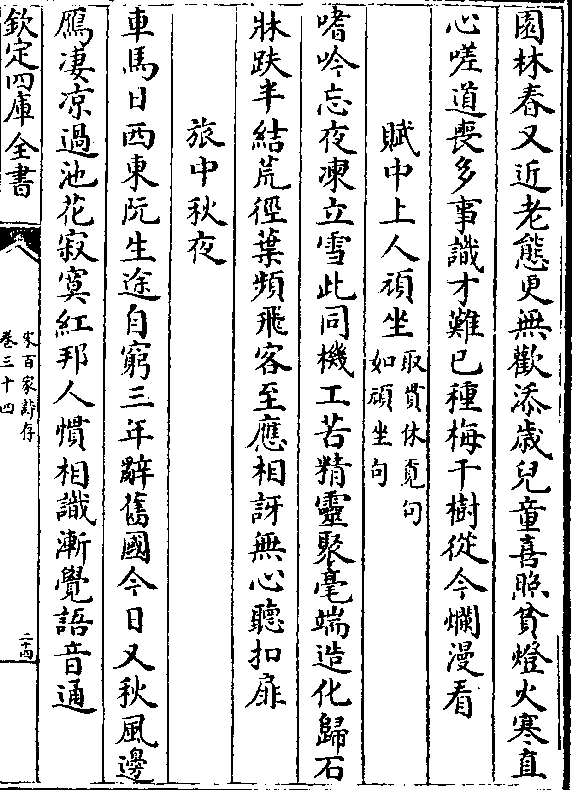 園林春又近老態更無歡添歲兒童喜照貧燈火寒直
心嗟道喪多事識才難已種梅千樹從今爛漫看
賦中上人頑坐取貫休覓句如頑坐句
嗜吟忘夜凍立雪此同機工苦精靈聚毫端造化歸石
牀趺半結荒徑葉頻飛客至應相訝無心聽扣扉
旅中秋夜
車馬日西東阮生途自窮三年辭舊國今日又秋風邊
鴈凄凉過池花寂寞紅邦人慣相識漸覺語音通
欽定四庫全書
宋百家詩存
卷三十四
二十四